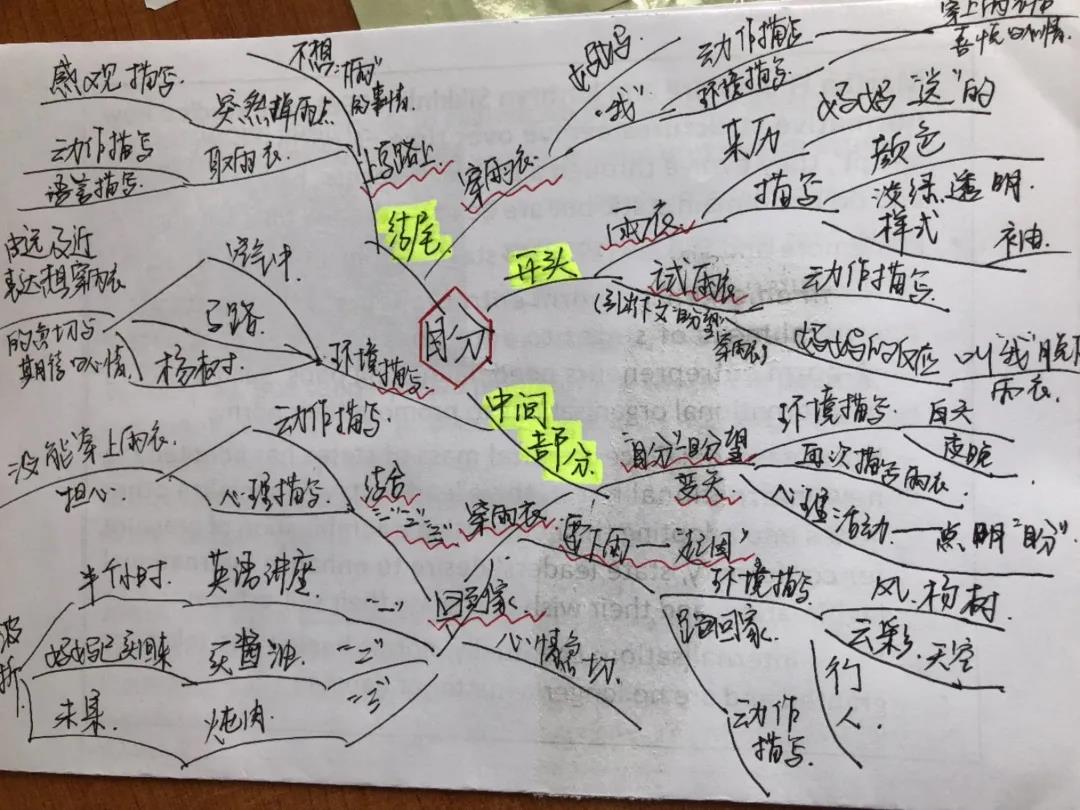 盼
开头
雨衣
来历
妈妈"送"的
描写
颜色
淡绿透明
样式
袖
试雨衣
(引出下文"盼望"
穿雨衣)
动作描写
妈妈的反应
叫"我"脱下
雨衣
中间
部分
"盼"盼望
变天
环境描写
白天
夜晚
再次描写雨衣
心理活动
点明"盼"
遇雨
在围
环境描写
风.杨树
云彩.天空
跑回家
动作
描写
行
人
穿雨衣
回到家
心情急切
"一"
英语讲座
半个小时
"二"
买酱油
妈妈已买回来
"三"
炖肉
未果
波
折
结合
"一""二""三"
动作描写
心理描写
没能穿上雨衣
担心
环境描写
空气中
马路
杨树叶
由远及近
表达想穿雨衣
的急切与
期待心情
结尾
上学路上
不想
"雨"
的事情
突然掉雨点
感观描写
取雨衣
动作描写
语言描写
穿雨衣
妈妈
"我"
动作描写
环境描写
穿上雨衣
喜悦的心情